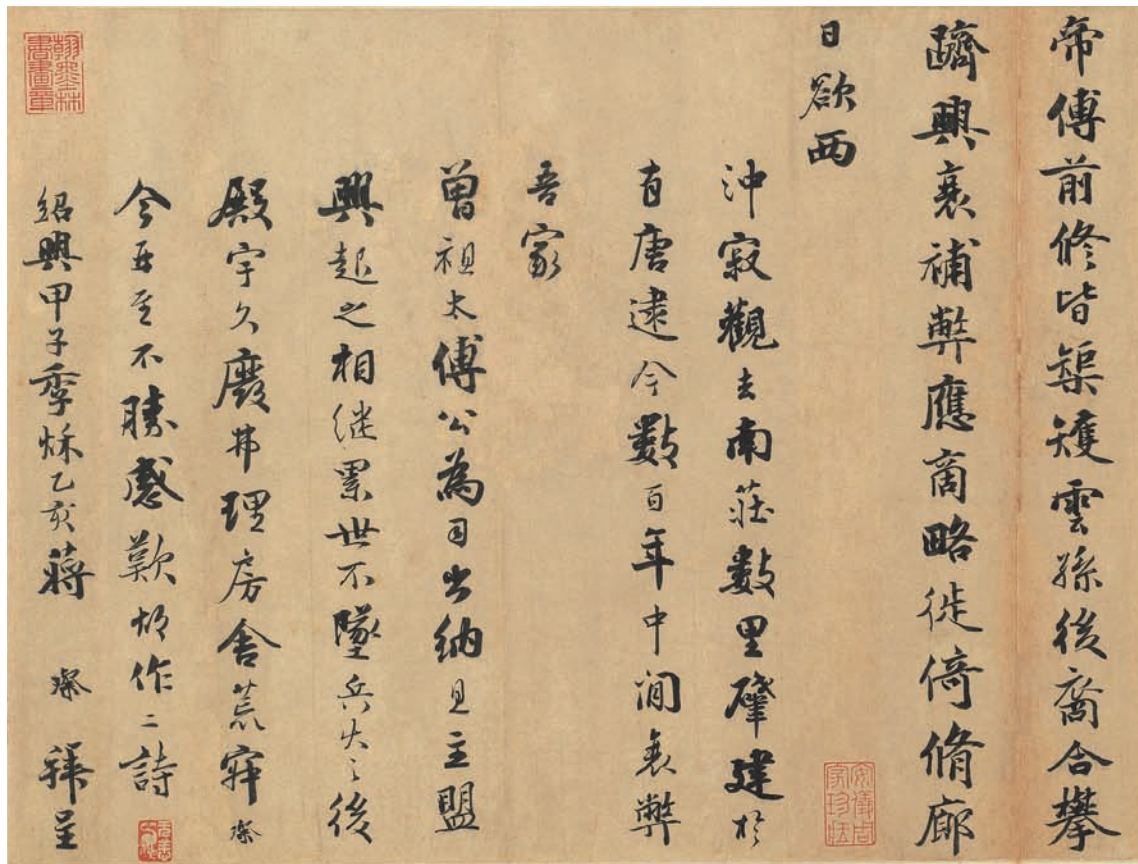 帝傅前修皆榘矱雲孫後裔合攀
躋興衰補弊應商略徙倚脩廊
日欲西
沖寂觀去南莊數里肇建於
有唐逮今數百年中間衰弊
吾家
曾祖太傅公為司出納且主盟
興起之相继累世不墜兵火之後
殿宇久廢弗理房舍荒穽璨
今再至不勝感歎故作二詩
紹興甲子季秌乙亥蔣璨拜呈
翰墨林書畫章
安儀周家珍藏